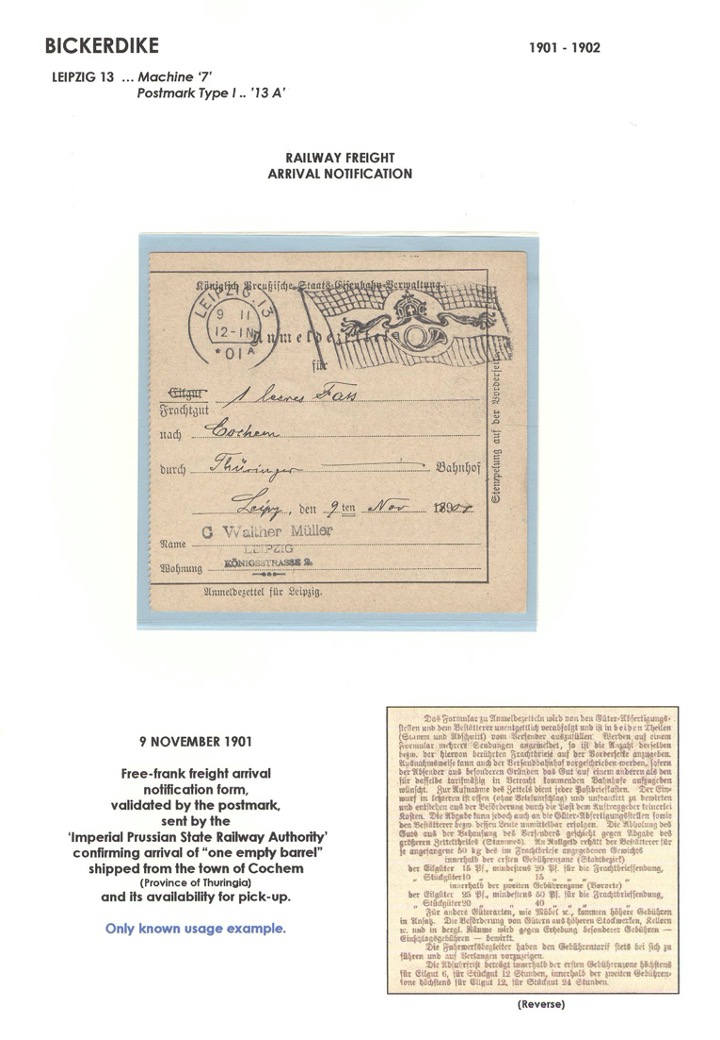 BICKERDIKE
1901 - 1902
LEIPZIG 13 ... Machine ‘7’
Postmark Type I .. ’13 A’
RAILWAY FREIGHT
ARRIVAL NOTIFICATION
Königlich Preußische Staats-Eisenbahn-Verwaltung.
LEIPZIG 13
9 11
12-1N
* 01 A
Anmeldezettel
für
Eilgut
Frachtgut
1 leeres Fass
nach Cochem
durch Thüringer Bahnhof
Leipz, den 9ten Nov 1901
C Walther Müller
Name
LEIPZIG
Wohnung KÖNIGSSTRASSE 2.
Stempelung auf der Vorderseite
Anmeldezettel für Leipzig.
9 NOVEMBER 1901
Free-frank freight arrival
notification form,
validated by the postmark,
sent by the
‘Imperial Prussian State Railway Authority’
confirming arrival of “one empty barrel”
shipped from the town of Cochem
(Province of Thuringia)
and its availability for pick-up.
Only known usage example.
Das Formular zu Anmeldezetteln wird von den Güter-Abfertigungs-
stellen und dem Bestätterer unentgeltlich verabfolgt und ist in beiden Theilen
(Stamm und Abschnitt) vom Versender auszufüllen. Werden auf einem
Formular mehrere Sendungen angemeldet, so ist die Anzahl derselben
bezw. der hiervon berührten Frachtbriefe auf der Vorderseite anzugeben.
Ausnahmsweise kann auch der Versandbahnhof vorgeschrieben werden, sofern
der Absender aus besonderen Gründen das Gut auf einem anderen als den
für dasselbe tarifmäßig in Betracht kommenden Bahnhofe aufzugeben
wünscht. Zur Aufnahme des Zettels dient jeder Postbriefkasten. Der Ein-
wurf in letzteren ist offen (ohne Briefumschlag) und unfrankirt zu bewirken
und entstehen aus der Beförderung durch die Post dem Auftraggeber keinerlei
Kosten. Die Abgabe kann jedoch auch an die Güter-Abfertigungsstellen sowie
den Bestätterer bezw. dessen Leute unmittelbar erfolgen. Die Abholung des
Guts aus der Behausung des Versenders geschieht gegen Abgabe des
größeren Zetteltheiles (Stammes). An Rollgeld erhält der Bestätterer für
je angefangene 50 kg des im Frachtbriefe angegebenen Gewichts
innerhalb der ersten Gebührenzone (Stadtbezirk)
der Eilgüter 15 Pf., mindestens 20 Pf. für die Frachtbriefsendung,
„ Stückgüter 10 „ „ 15 „ „ „
innerhalb der zweiten Gebührenzone (Vororte)
der Eilgüter 25 Pf., mindestens 50 Pf. für die Frachtbriefsendung,
„ Stückgüter 20 „ „ 40 „ „ „
Für anders Güterarten, wie Möbel ꝛc., kommen höhere Gebühren
in Ansatz. Die Beförderung von Gütern aus höheren Stockwerken, Kellern
ꝛc. und in dergl. Räume wird gegen Erhebung besonderer Gebühren —
— bewirkt.
Die Fuhrwerksbegleiter haben den Gebührentarif stets bei sich zu
führen und auf Verlangen vorzuzeigen.
Die beträgt innerhalb der ersten Gebührenzone höchstens
für Eilgut 6, für Stückgut 12 Stunden, innerhalb der zweiten Gebühren-
zone höchstens für Eilgut 12, für Stückgut 24 Stunden.
(Reverse)